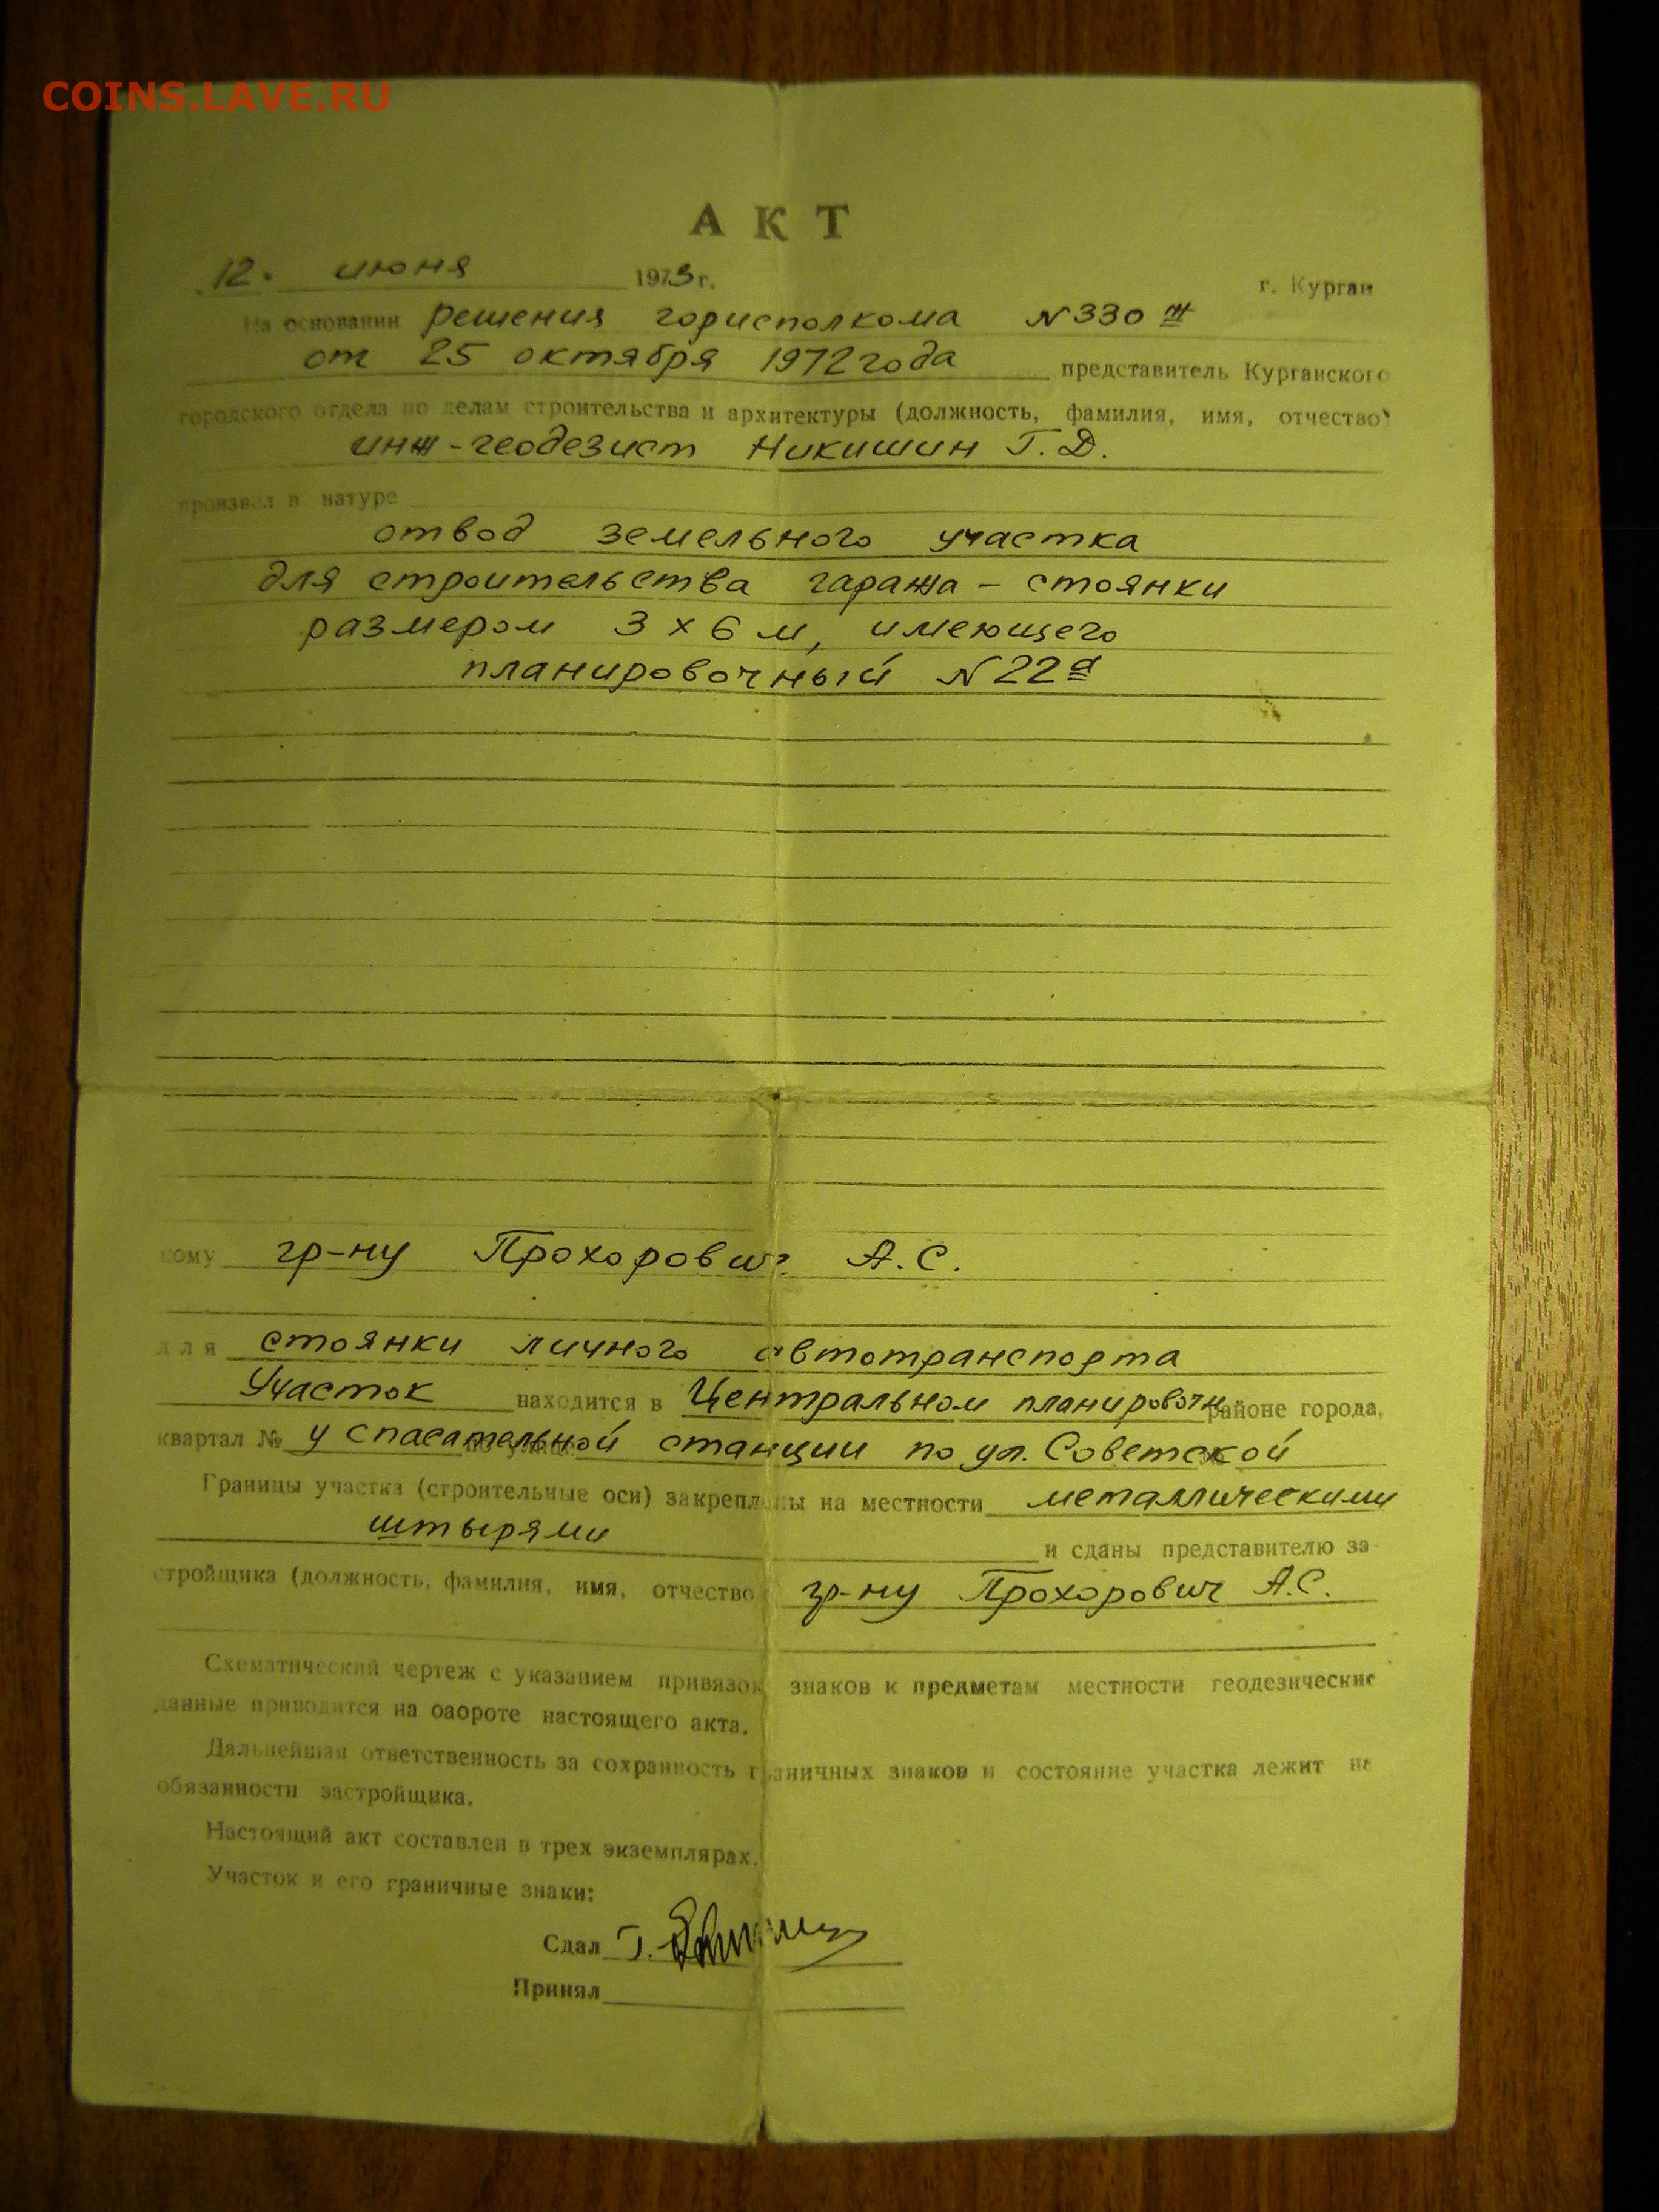 COINS.LAVE.RU
АКТ
12. июня 1973 г. г. Курган
На основании решения горисполкома N 330 ж
от 25 октября 1972 года представитель Курганского
городского отдела по делам строительства и архитектуры (должность, фамилия, имя, отчество)
инж-геодезист Никишин Г. Д.
произвел в натуре
отвод земельного участка
для строительства гаража - стоянки
размером 3 х 6 м, имеющего
планировочный N 22а
кому гр-ну Прохорович А.С.
для стоянки личного автотранспорта
Участок находится в Центральном планировочн районе города,
квартал № у спасательной станции по ул. Советской
Границы участка (строительные оси) закреплены на местности металлическими
штырями и сданы представителю за-
стройщика (должность, фамилия, имя, отчество) гр-ну Прохорович А.С.
Схематический чертеж с указанием привязок знаков к предметам местности геодезические
данные приводится на озороте настоящего акта.
Дальнейшая ответственность за сохранность граничных знаков и состояние участка лежит на
обязанности застройщика.
Настоящий акт составлен в трех экземплярах.
Участок и его граничные знаки:
Сдал Г.
Принял